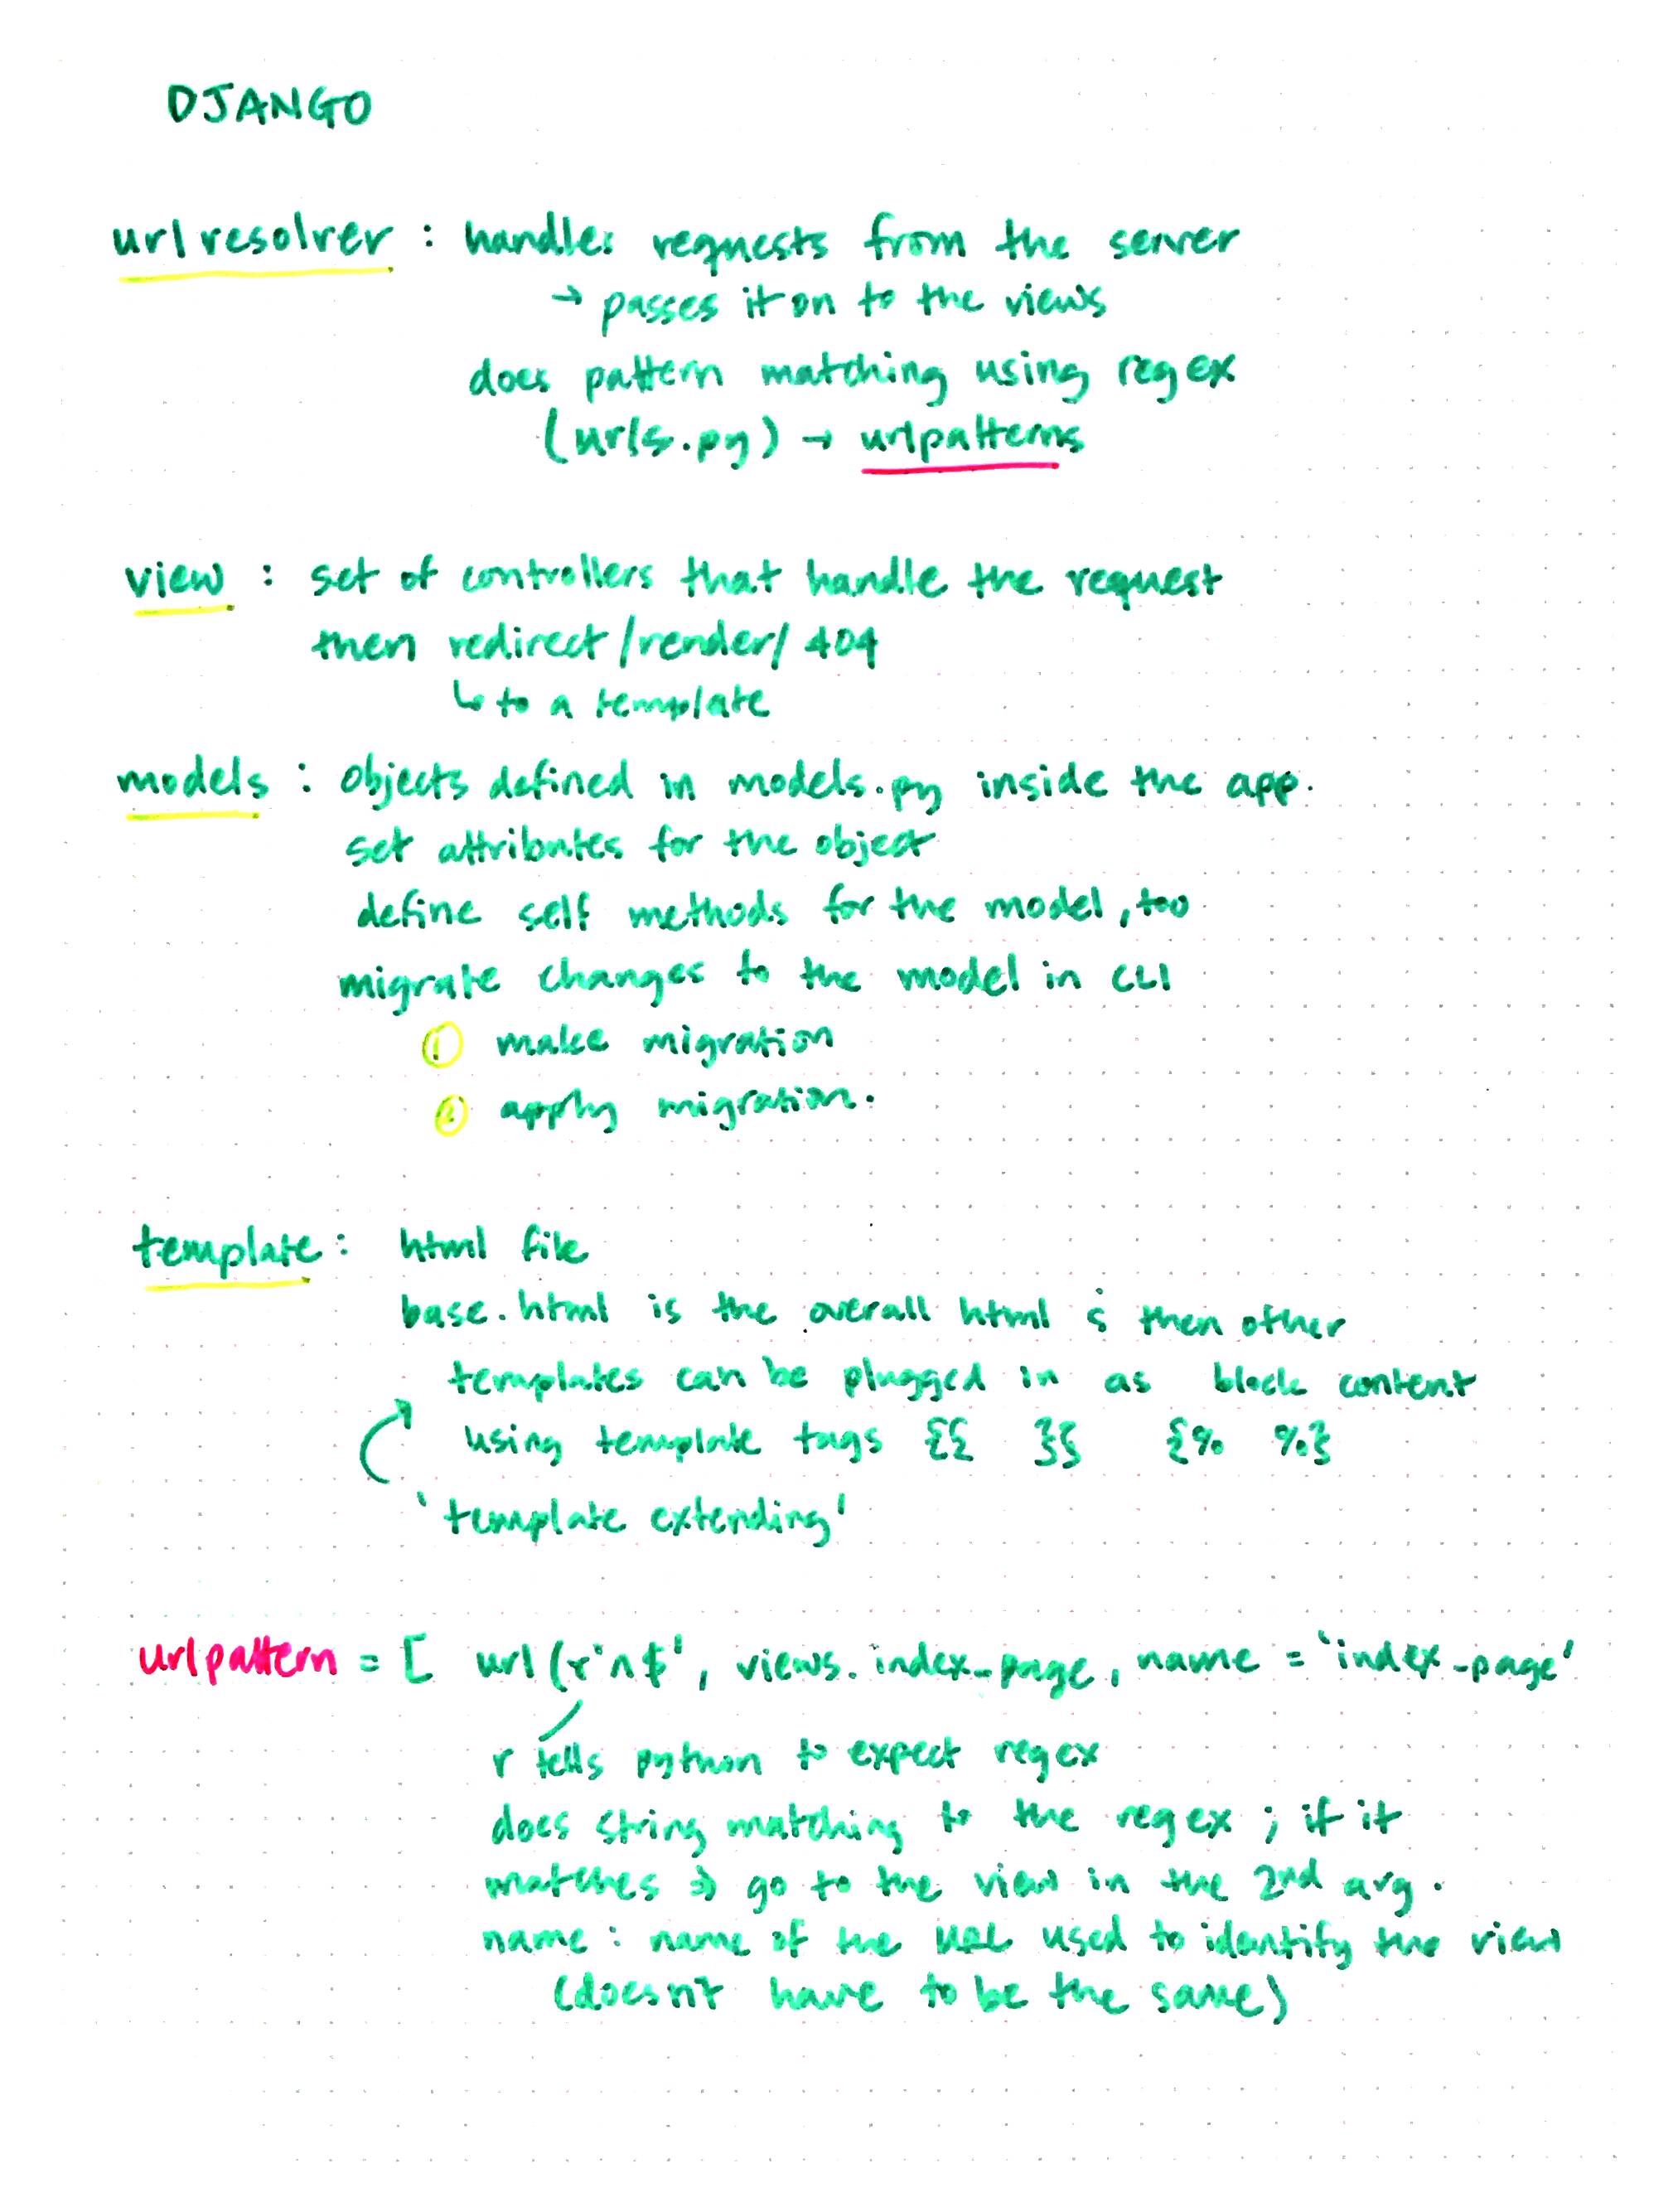 DJANGO
url resolver : handles requests from the server
→ passes it on to the views
does pattern matching using regex
(urls.py) → urlpatterns
view : set of controllers that handle the request
then redirect/render/404
↳ to a template
models : objects defined in models.py inside the app.
set attributes for the object
define self methods for the model, too
migrate changes to the model in CLI
① make migration
② apply migration.
template : html file
base.html is the overall html & then other
templates can be plugged in as block content
using template tags {{ }} {% %}
'template extending'
urlpattern = [ url(r'^$', views.index_page, name = 'index-page'
r tells python to expect regex
does string matching to the regex ; if it
matches → go to the view in the 2nd arg.
name : name of the URL used to identify the view
(doesn't have to be the same)